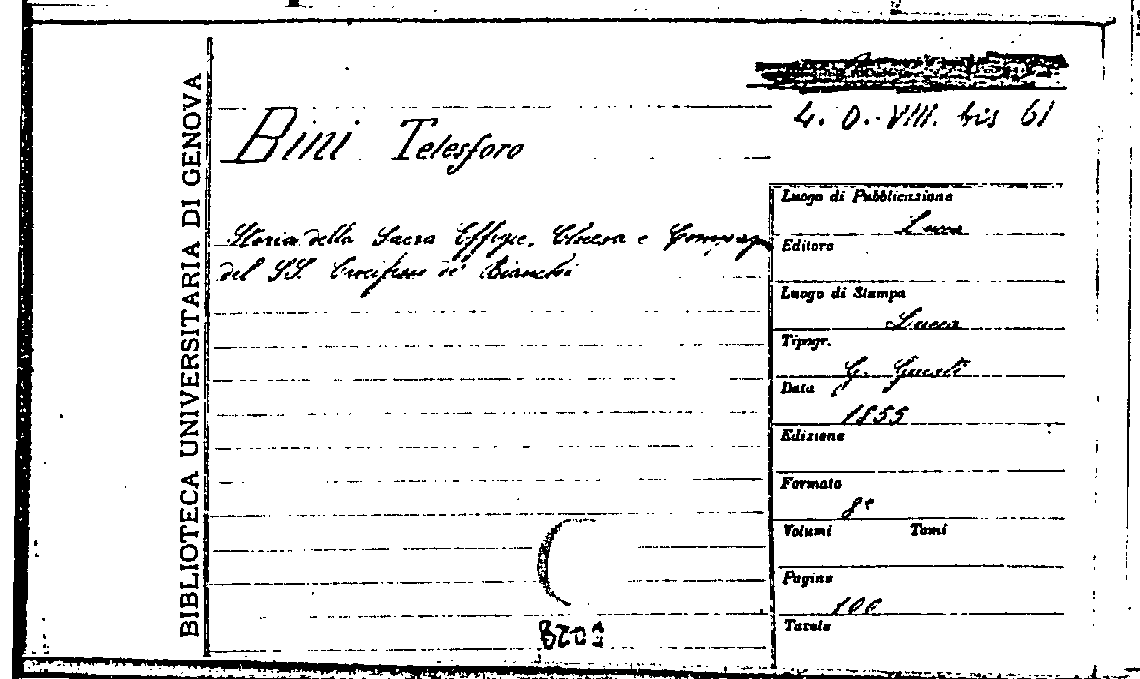 BIBLIOTECA UNIVERSITARIA DI GENOVA
4. O. VIII. bis 61
Bini Telesforo
Storia della Sacra Effigie, Chiesa e Compagn
del SS. Crocifisso de' Bianchi
Luogo di Pubblicazione
Lucca
Editore
Luogo di Stampa
Lucca
Tipogr.
G. Giusti
Data
1855
Edizione
Formato
8°
Volumi Tomi
Pagine
100
Tavole